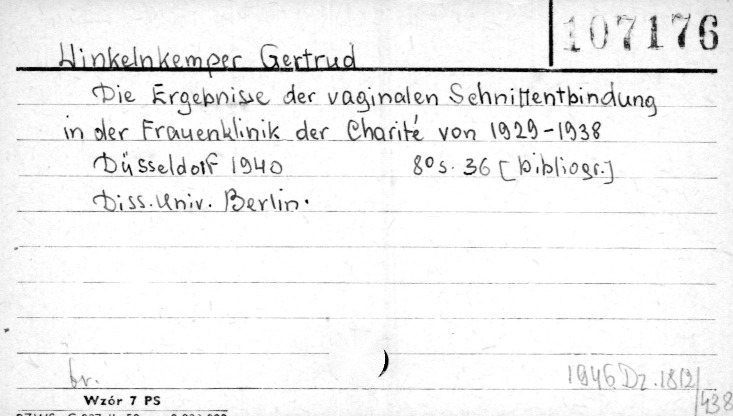 107176
Winkelnkemper Gertrud
Die Ergebnisse der vaginalen Schnittentbindung
in der Frauenklinik der Charité von 1929-1938
Düsseldorf 1940 80 s. 36 [bibliogr.]
Diss. Univ. Berlin.
br.
1946 Dz. 1812/438
Wzór 7 PS